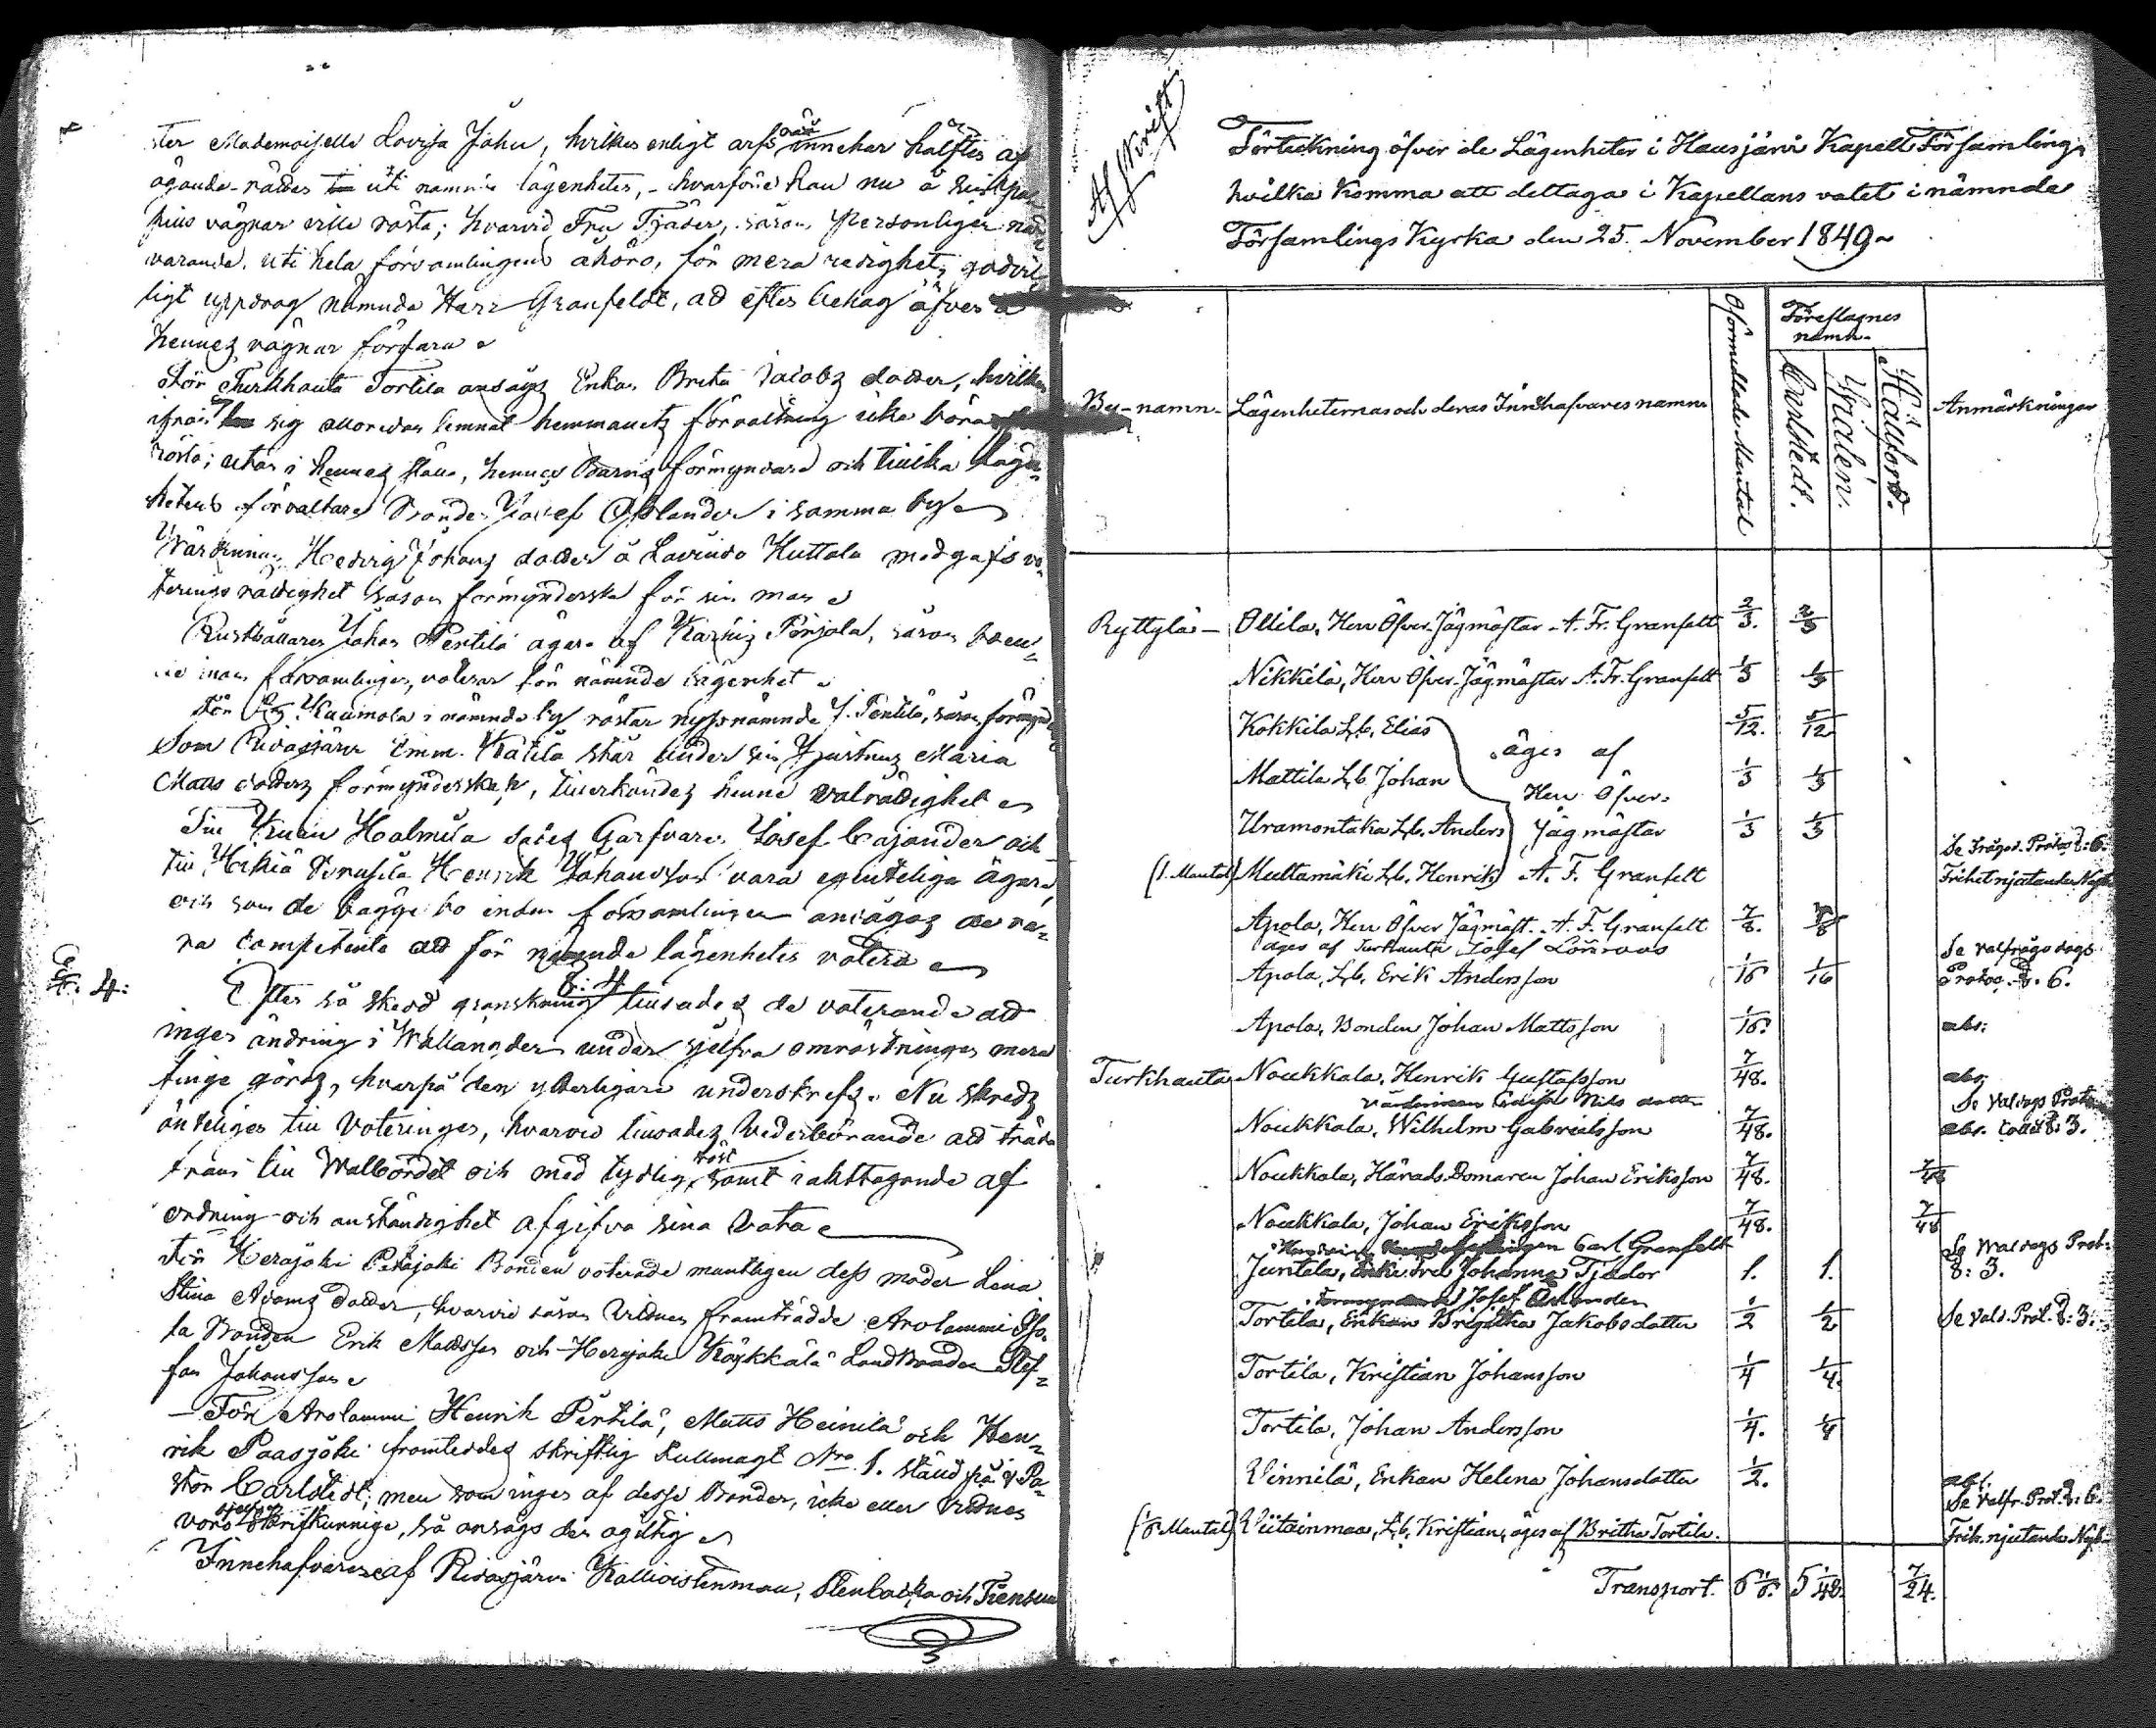 ster Mademoiselle Lovisa Jahn, hvilken enligt arfs innehar hälften af
ägande-rätten uti nämnde lägenheter, - hvarföre han nu å
hens vägnar ville rösta; hvarvid Fru Tjäder, såsom personligen när
varande, uti hela församlingens åhöro, för mera redighet, godvil
ligt uppdrog nämnde Herr Granfeldt, att efter behag äfven å
hennes vägnar förfara
För Turkhauta Tortila ansågs Enkan Brita Jacobs dotter, hvilken
ifrån sig allaredan lemnat hemmanets förvaltning icke böra
rösta; utan i hennes ställe, hennes Barns förmyndare och tillika lägen-
hetens förvaltare Bonden Josef i samma by
Wärdinnan Hedvig Johans dotter å Lavinto Huttala medgafs vo-
terings rättighet såsom förmynderska för sin man
Rusthållaren Johan Pertilä ägare af Pörjola, såsom boen-
de inom församlingen, voterar för nämnde lägenhet
För Kuumola i nämnde by röstar nyssnämnde J. Pertilä, såsom förmynd
Som Ridasjärvi Emm. Katila står under sin hustrus Maria
Matts dotters förmynderskap, tillerkändes henne valrättighet
Till Halmila sades Garfvaren Josef Cajander och
till Hikiä Henrik Johansson vara egenteliga ägare,
och som de bägge bo inom församlingen ansågos de va-
ra competenta att för nämnde lägenheter votera
§: 4:
§. 4
Efter så skedd granskning tillsades de voterande att
ingen ändring i Wallängden under sjelfva omröstningen mera
finge göras, hvarpå den ytterligare underskrefs. Nu skreds
änteligen till Voteringen, hvarvid tillsades Vederbörande att träda
fram till Walbordet och med tydlig röst samt iakttagande af
ordning och anständighet afgifva sina Vota
För Herajoki Petäjäki Bonden voterade muntligen dess moder Lena
Stina Adams dotter, hvarvid såsom Vittnen framträdde Arolammi
la Bonden Erik Mattsson och Herajoki Köykkälä Landbonden Stef-
fan Johansson
- För Arolammi Henrik Pertilä, Matts Heinilä och Hen-
rik Paasjoki framteddes skriftlig fullmagt Nro 1. ställd på Pa-
stor Carlstedt; men som ingen af desse Bönder, icke eller Vittnen
voro sjelfve skrifkunnige, så ansågs den ogiltig
Innehafvarene af Ridasjärvi Kallioistenmaa, Stenbacka och Tiensuu
3
Afskrift
Förteckning öfver de Lägenheter i Hausjärvi Kapell Församling,
hvilka komma att deltaga i Kapellans valet i nämnda
Församlings Kyrka den 25. November 1849
By-namn- Lägenheternas och deras Innehafvares namn Oförmedlade Mantal Föreslagnes namn- Carlstedt. Widen. Hällfors. Anmärkningar
Ryttylä- Ollila, Herr Öfver-Jägmästar A. Fr. Granfelt 2/3. 2/3
Nikkilä, Herr Öfver-Jägmästar A. Fr. Granfelt 1/3 1/3
Kokkila Lb. Elias 5/12. 5/12
äges af
Mattila Lb. Johan 1/3 1/3
Herr Öfver-
Uramontaka Lb. Anders Jägmästar 1/3 1/3
Se Frågod. Protoc. §: 6.
(1. Mantal) Multamäki Lb. Henrik A. F. Granfelt Frihet njutande Nyb.
Apola, Herr Öfver Jägmäst. A. F. Granfelt 7/8. 7/8
äges af Turkhauta Josef Lönroos Se valfrågo dags
Apola, Lb. Erik Andersson 1/16 1/16 Protoc. §. 6.
Apola, Bonden Johan Mattsson 1/16. abs:
Turkhauta Noukkala, Henrik Gustafsson 7/48. abs.
Värdinnan Nils dotter Se Valdags Proto
Noukkala, Wilhelm Gabrielsson 7/48. abs. §: 3.
Noukkala, Härads-Domaren Johan Eriksson 7/48. 7/48
Noukkala, Johan Eriksson 7/48. 7/48
Carl Granfelt Se Waldags Prot:
Juntala, Enke Fru Johanna Tjäder 1. 1. §: 3.
Josef
Tortila, Enkan Brigitha Jakobsdotter 1/2 1/2 Se Vald. Prot. §: 3:
Tortila, Kristian Johansson 1/4 1/4.
Tortila, Johan Andersson 1/4. 1/4
Winnilä, Enkan Helena Johansdotter 1/2. abs.
Se Valfr. Prot. §: 6.
(1/6 Mantal) Viitainmaa, Lb. Kristian, äges af Britha Tortila. Frih. njutande Nyb-
Transport. 6 1/6. 5 1/48. 7/24.